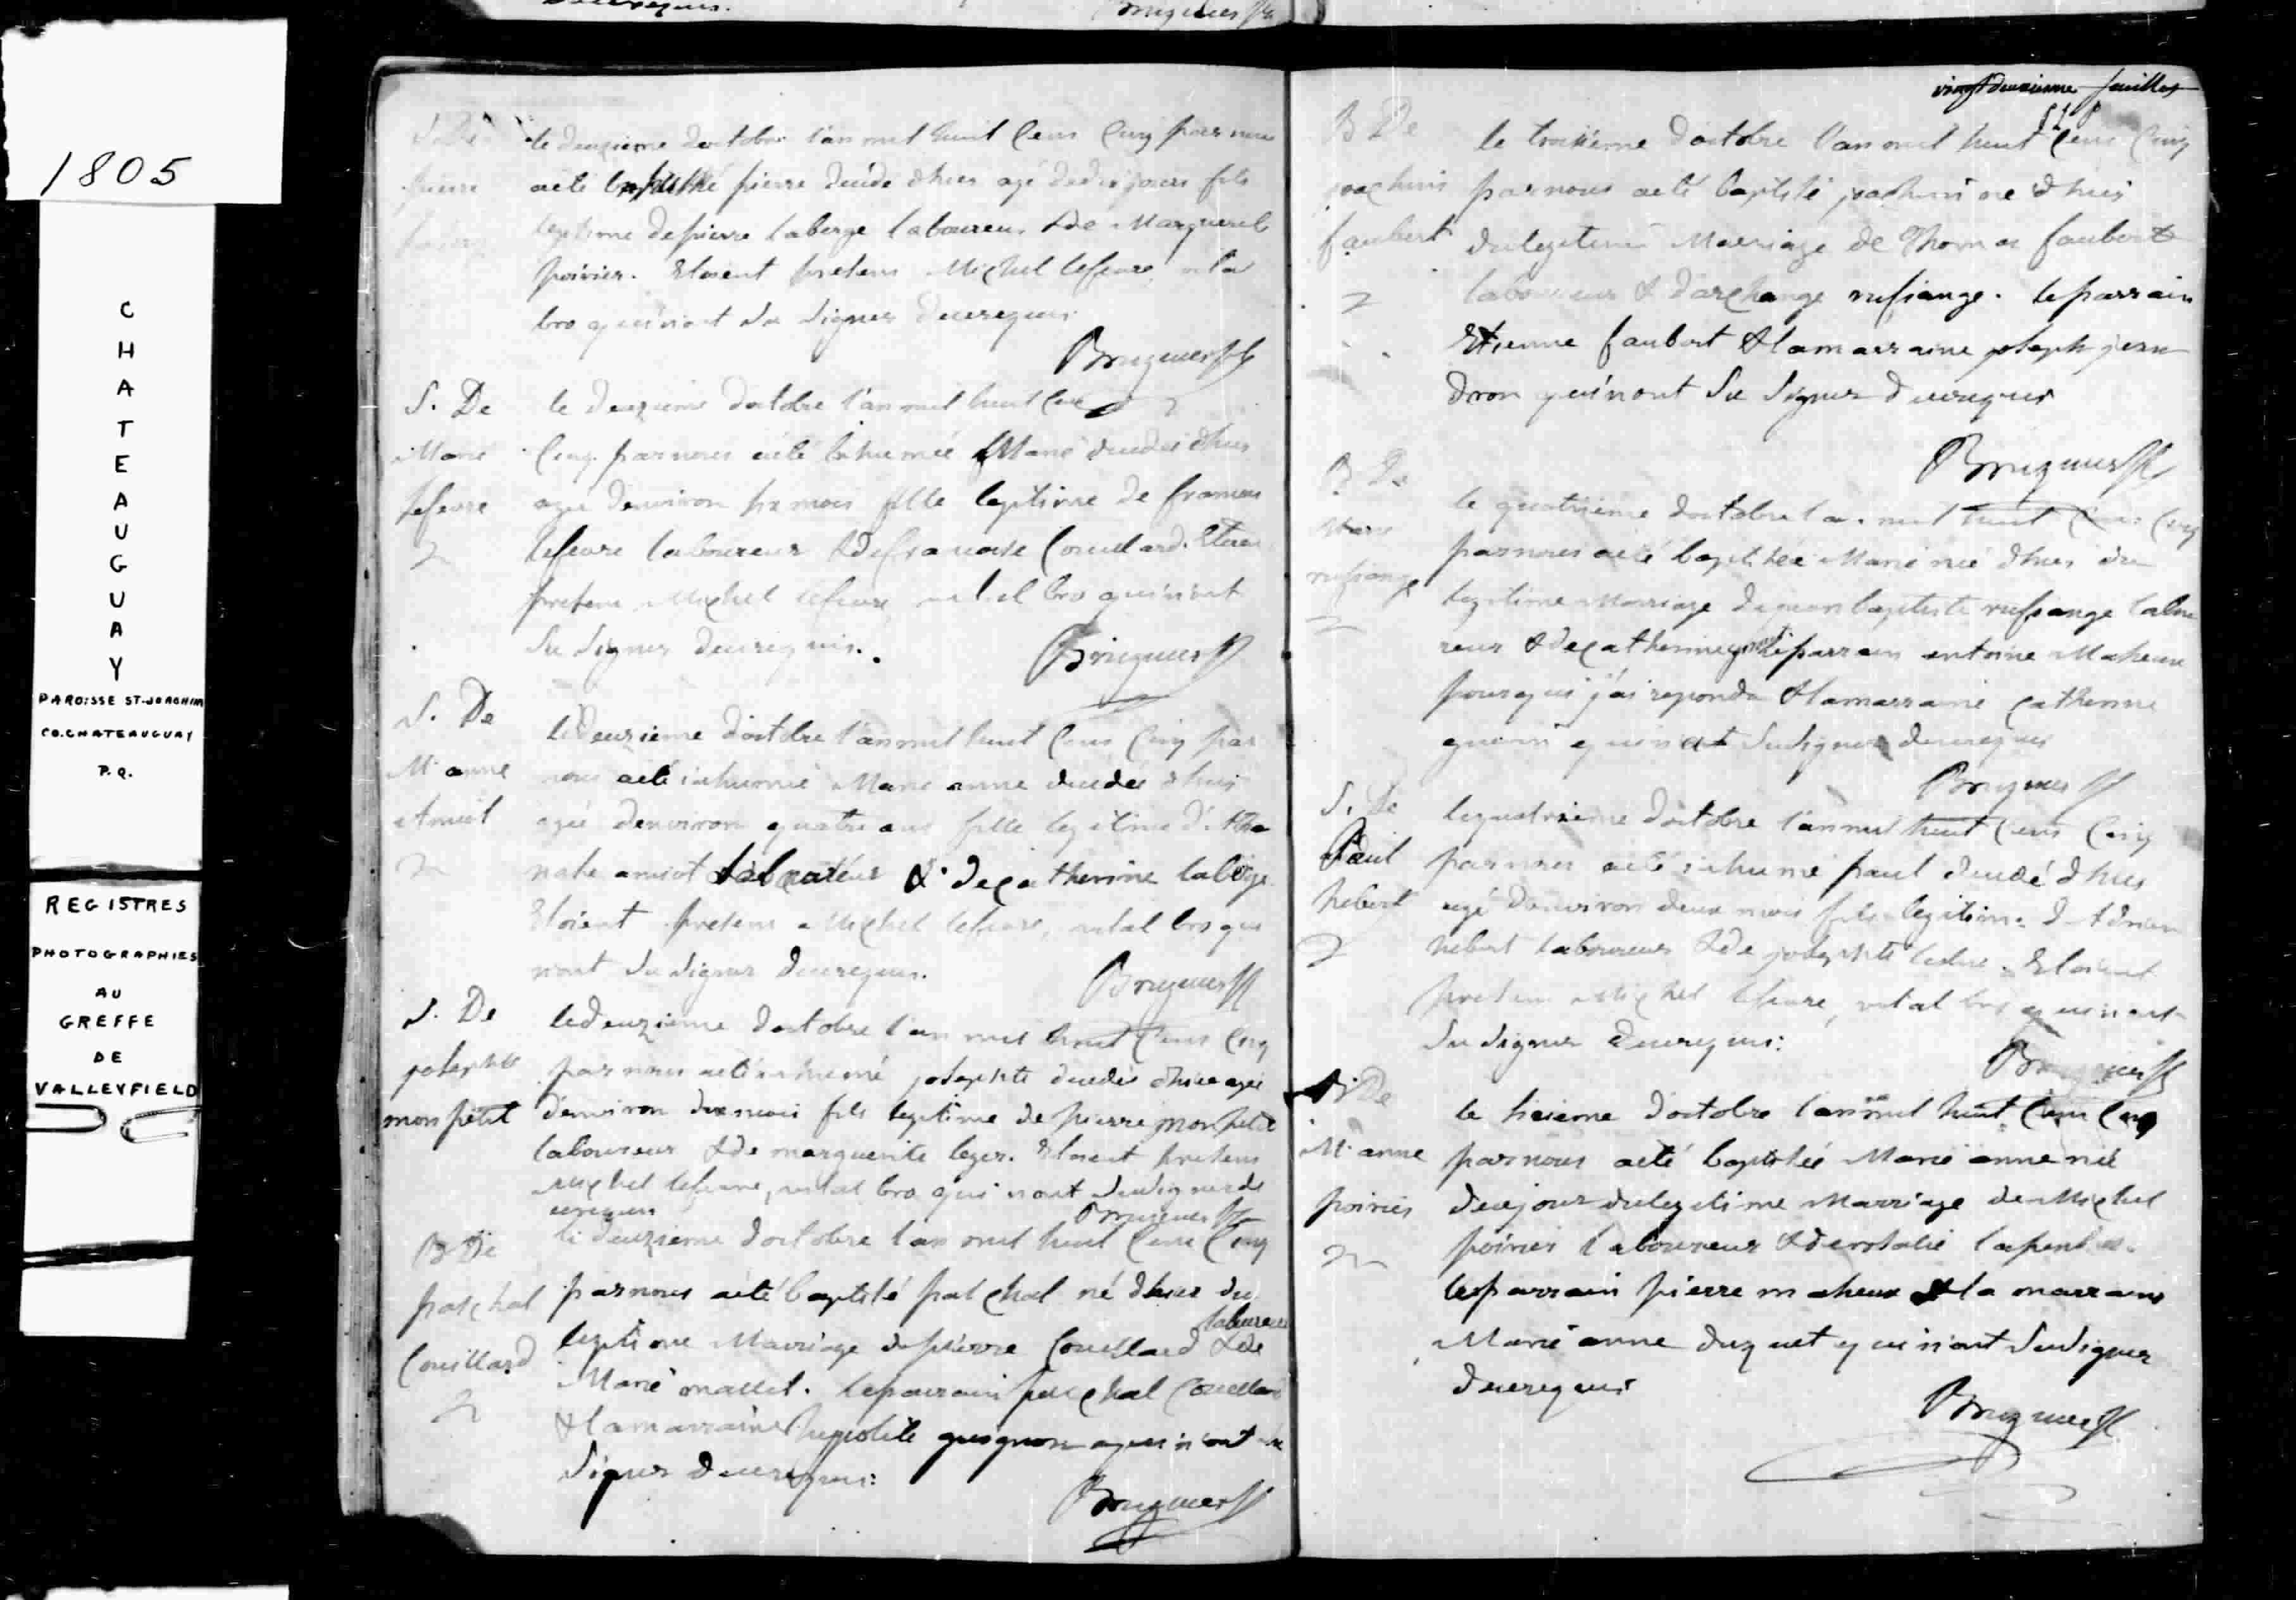 1805
CHATEAUGUAY
PAROISSE ST-JOACHIM
CO. CHATEAUGUAY
P.Q.
REGISTRES
PHOTOGRAPHIES
AU
GREFFE
DE
VALLEYFIELD
le deuzieme doctobre l'an mil huit cens cinq par nous
aété pierre décédé d'hier agé de jours fils
legitime de pierre laberge laboureur & de Marguerite
poirier. Etoient presens Michel lefevre, vital
bro qui n'ont su signer de ce requis
Bruguier ptr
S. De
Marie
lefevre
le deuzieme doctobre l'an mil huit cens
cinq par nous aété inhumée Marie décédée d'hier
agée denviron mois fille legitime de francois
lefevre laboureur & de francoise Couillard. Etoient
presens Michel lefevre, vital bro qui n'ont
su signer de ce requis.
Bruguier ptr
S. De
M. anne
Amiot
le deuzieme d'octobre l'an mil huit cens cinq par
nous aété inhumée Marie anne décédée d'hier
agée denviron quatre ans fille legitime d'
amiot & de catherine laberge
Etoient presens Michel lefevre, vital bro qui
n'ont su signer de ce requis.
Bruguier ptr
S. De
josephte
monpetit
le deuzieme doctobre l'an mil huit cens cinq
par nous aété inhumé josephte décédée d'hier agée
d'environ mois fils legitime de pierre monpetit
laboureur & de marguerite leger. Etoient presens
Michel lefevre, vital bro qui n'ont su signer de
ce requis
Bruguier ptr
B De
paschal
Couillard
le deuzieme doctobre l'an mil huit cens cinq
par nous aété baptisé paschal né d'hier du
laboureur
legitime Marriage de pierre Couillard & de
Marie mallet. le parrain paschal Couillard
& la marraine hypolite guignon qui n'ont su
signer de ce requis:
Bruguier ptr
vingt deuxieme feuillet
B De
joachim
faubert
le troisieme d'octobre l'an mil huit cens cinq
par nous aété baptisé joachim né d'hier
du legitime Marriage de Thomas faubert
laboureur & d'archange rufiange. le parrain
Etienne faubert & la marraine joseph jean
dron qui n'ont su signer de ce requis
Bruguier ptr
B De
Marie
rufiange
le quatrieme doctobre l'an mil huit cens cinq
par nous aété baptisée Marie née d'hier du
legitime Marriage de jean baptiste rufiange labou
reur & de catherine le parrain antoine Maheux
pour qui j'ai repondu & la marraine catherine
qui n'ont su signer de ce requis
Bruguier ptr
S. De
Paul
hebert
le quatrieme d'octobre l'an mil huit cens cinq
par nous aété inhumé paul décédé d'hier
agé d'environ deux mois fils legitime d'Adrien
hebert laboureur & de josephte leduc. Etoient
presens Michel lefevre, vital bro qui n'ont
su signer de ce requis:
Bruguier ptr
B De
M. anne
poirier
le sixieme d'octobre l'an mil huit cens cinq
par nous aété baptisée Marie anne née
de ce jour du legitime Marriage de Michel
poirier laboureur & de
le parrain pierre maheux & la marraine
Marie anne duquet qui n'ont su signer
de ce requis
Bruguier ptr